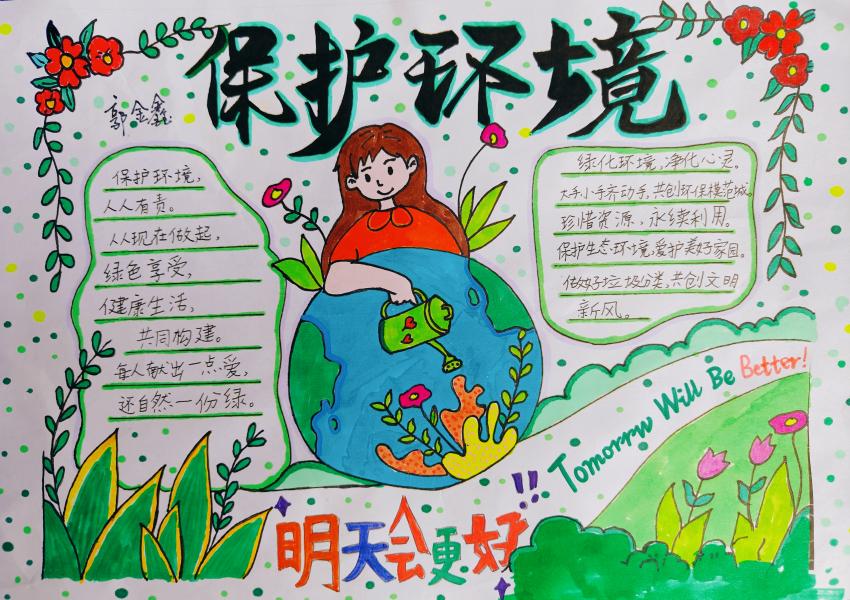 保护环境
郭金鑫
保护环境,
人人有责。
从现在做起,
绿色享受,
健康生活,
共同构建。
每人献出一点爱,
还自然一份绿。
绿化环境,净化心灵。
大手小手齐动手,共创环保模范城。
珍惜资源,永续利用。
保护生态环境,爱护美好家园。
做好垃圾分类,共创文明
新风。
Tomorrw Will Be Better!
明天会更好!!